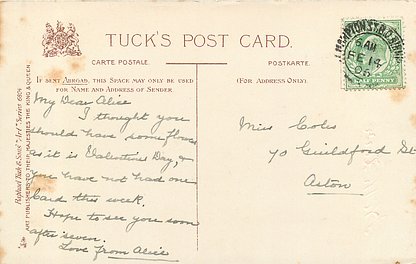 TUCK'S POST CARD.
CARTE POSTALE.
POSTKARTE.
IF SENT ABROAD, THIS SPACE MAY ONLY BE USED
FOR NAME AND ADDRESS OF SENDER
(FOR ADDRESS ONLY).
Raphael Tuck & Sons' "Art" Series 6804
ART PUBLISHERS TO THEIR MAJESTIES THE KING & QUEEN.
My Dear Alice
I thought you
should have some flowers
as it is Valentines Day, &
you have not had one
card this week.
Hope to see you soon
after seven.
Love from Alice
Miss Coles
70 Guildford St
Aston
5 AM
FE 14
05
HALF PENNY